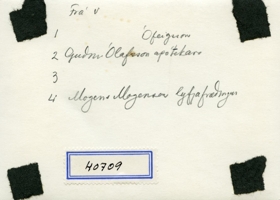 Frá v
1 Ófeigsson
2 Guðni Ólafsson apótekari
3
4 Mogens Mogensen lyfjafræðingur
40709